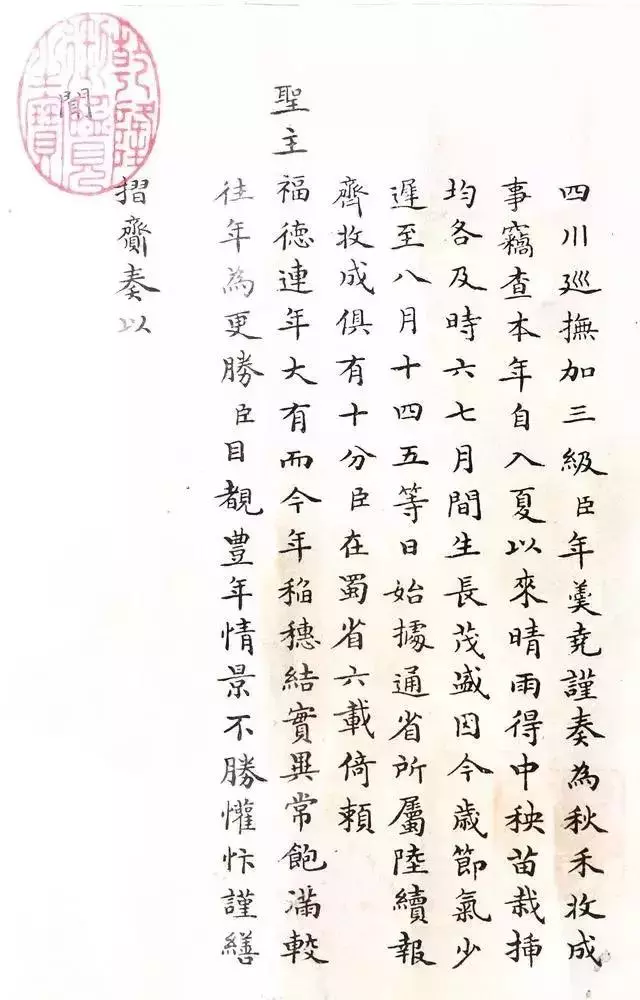 四川廵撫加三級臣年羹堯謹奏為秋禾收成
事竊查本年自入夏以來晴雨得中秧苗栽插
均各及時六七月間生長茂盛因今歲節氣少
遲至八月十四五等日始據通省所屬陸續報
齊收成俱有十分臣在蜀省六載倚賴
聖主福德連年大有而今年稲穗結實異常飽滿較
往年為更勝臣目覩豊年情景不勝懽忭謹繕
摺齎奏以
聞
乾隆
御覽
之寶